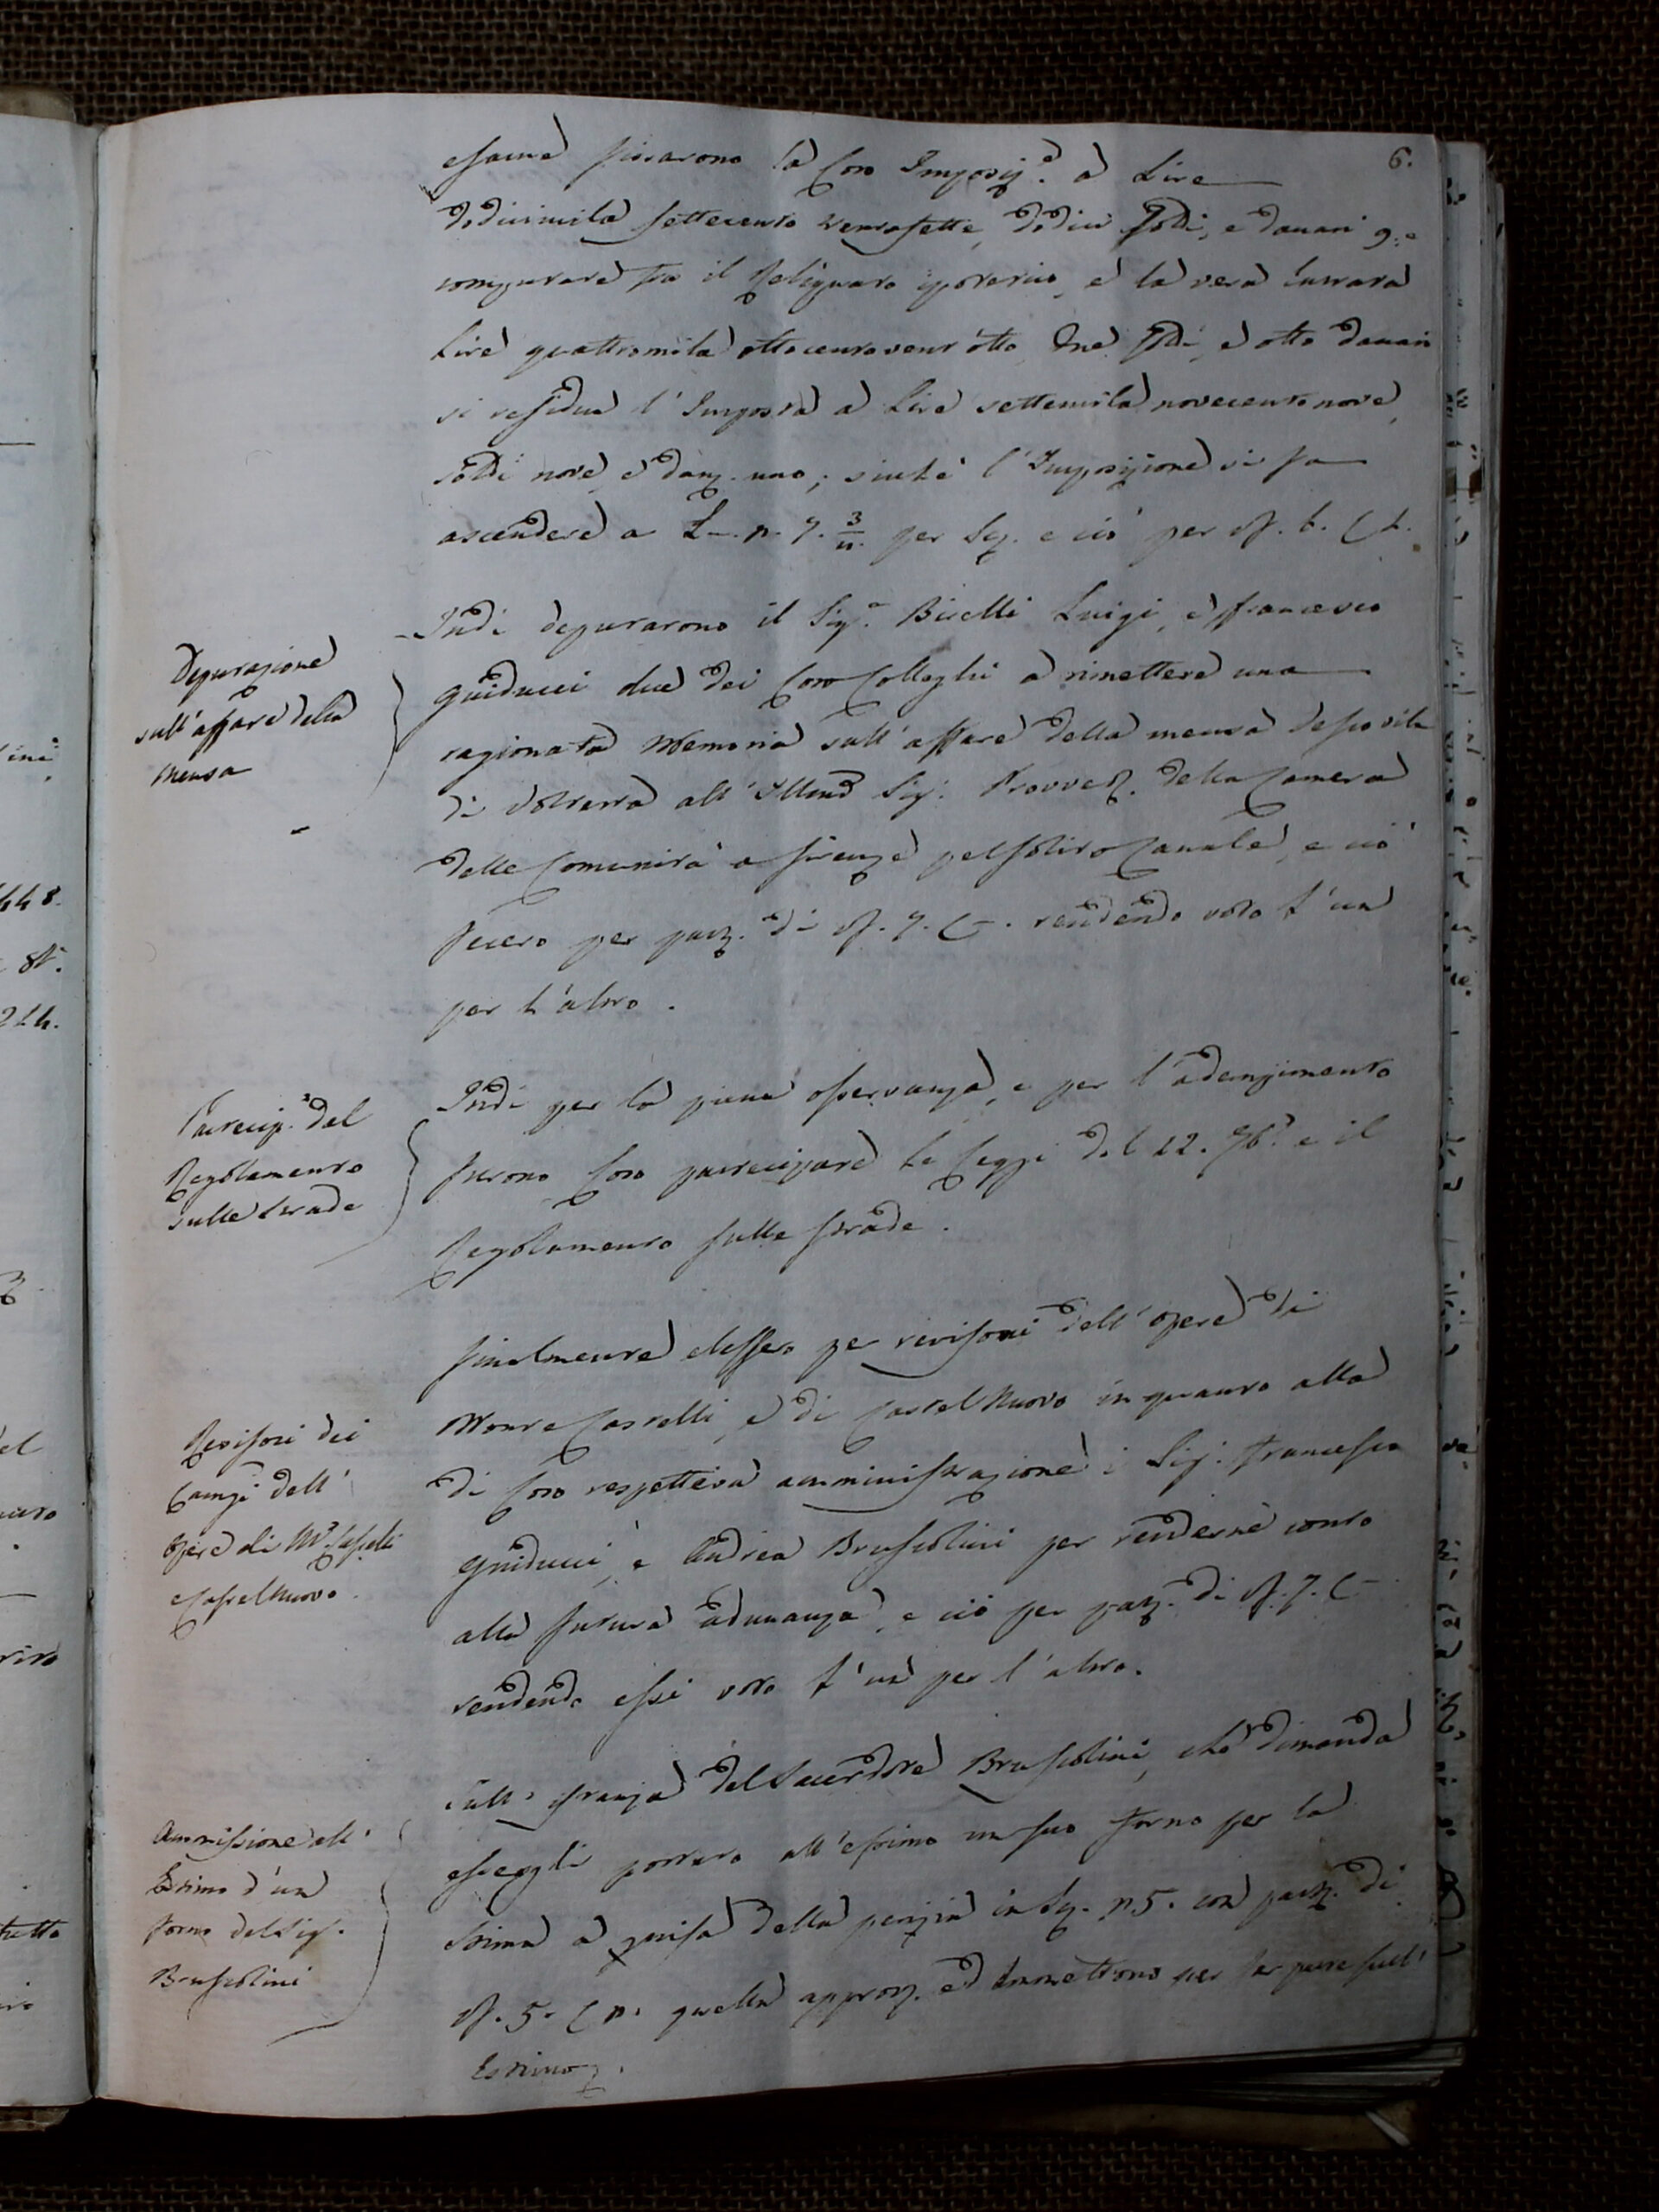 6.
esame fissarono la loro Imposiz.e a Lire
dodicimila settecento trentasette, dodici soldi, e danari 9: e
computare fra il Reliquato ipoterio, e la vera entrata
Lire quattromila ottocentovent'otto tre soldi, e otto danari
si residua l'Imposta a Lire settemila novecento nove,
soldi nove, e dan. uno; sinche l'Imposizione si fa
ascendere a L. n. 7. 3/11. per e ciò per vf. 6. C 1.
Deputazione
sull'affare della
Mensa
Indi deputarono il Sig.r Bicelli Luigi, e francesco
Guiducci due dei loro Colleghi a rimettere una
ragionata Memoria sull'affare della mensa Vescovile
di Volterra all'Illmo Sig. Provved. della Camera
delle Comunità a firenze pel solito Canale, e ciò
fecero per part. di vf. 7. C –. rendendo voto l'un
per l'altro.
Partecip.e del
Regolamento
sulle strade
Indi per la piena osservanza, e per l'adempimento
furono loro partecipate le Leggi del 12. 7b.e e il
Regolamento sulle strade.
Revisori dei
Campi dell'
Opere di M.e Castelli
e Castelnuovo.
finalmente elessero per revisori dell'opere di
Monte Castelli, e di Castel Nuovo in quanto alla
di loro respettiva amministrazione i Sig. Francesco
Guiducci, e Andrea Bruscolini per renderne conto
alla futura adunanza, e ciò per part. di vf. 7. C –
rendendo essi voto l'un per l'altro.
Ammissione all'
Estimo d'un
forno del Sig.
Bruscolini
Sull'istanza del Sacerdote Bruscolini, che domanda
essergli portato all'estimo un suo forno per la
stima a guisa della perizia in n. 5. con part. di
vf. 5. C n. quella approv. ed ammettono per far pure sull'
Estimo.